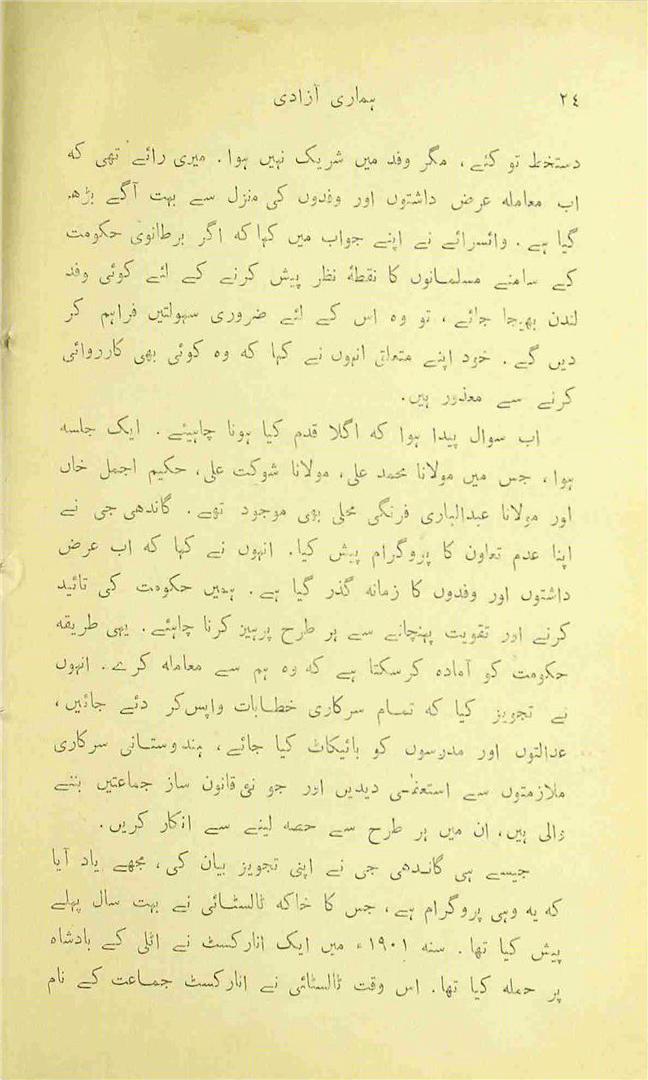 ٢٤
ہماری آزادی
دستخط تو کئے، مگر وفد میں شریک نہیں ہوا. میری رائے تھی که
اب معامله عرض داشتوں اور وفدوں کی منزل سے بہت آگے بڑھ
گیا ہے. وائسرائے نے اپنے جواب میں کہا که اگر برطانوی حکومت
کے سامنے مسلمانوں کا نقطۂ نظر پیش کرنے کے لئے کوئی وفد
لندن بھیجا جائے، تو وہ اس کے لئے ضروری سہولتیں فراہم کر
دیں گے. خود اپنے متعلق انہوں نے کہا که وہ کوئی بھی کارروائی
کرنے سے معذور ہیں.
اب سوال پیدا ہوا که اگلا قدم کیا ہونا چاہیئے. ایک جلسه
ہوا، جس میں مولانا محمد علی، مولانا شوکت علی، حکیم اجمل خاں
اور مولانا عبدالباری فرنگی محلی بھی موجود تھے. گاندھی جی نے
اپنا عدم تعاون کا پروگرام پیش کیا. انہوں نے کہا که اب عرض
داشتوں اور وفدوں کا زمانه گذر گیا ہے. ہمیں حکومت کی تائید
کرنے اور تقویت پہنچانے سے ہر طرح پرہیز کرنا چاہئے. یہی طریقه
حکومت کو آمادہ کرسکتا ہے که وہ ہم سے معامله کرے. انہوں
نے تجویز کیا که تمام سرکاری خطابات واپس کر دئے جائیں،
عدالتوں اور مدرسوں کو بائیکاٹ کیا جائے، ہندوستانی سرکاری
ملازمتوں سے استعفیٰ دیدیں اور جو نئی قانون ساز جماعتیں بننے
والی ہیں، ان میں ہر طرح سے حصه لینے سے انکار کریں.
جیسے ہی گاندھی جی نے اپنی تجویز بیان کی، مجھے یاد آیا
که یه وہی پروگرام ہے، جس کا خاکه ٹالسٹائی نے بہت سال پہلے
پیش کیا تھا. سنه ١٩٠١ء میں ایک انارکسٹ نے اٹلی کے بادشاہ
پر حمله کیا تھا. اس وقت ٹالسٹائی نے انارکسٹ جماعت کے نام